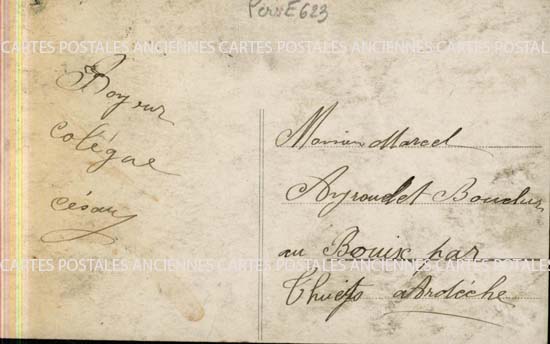 Pers E623
CARTES POSTALES ANCIENNES CARTES POSTALES ANCIENNES CARTES POSTALES ANCIENNES
Boyeur
colègue
césar
Monsieur Marcel
Ayroudet Boucher
au Bouix par
Thueyts Ardèche
CARTES POSTALES ANCIENNES CARTES POSTALES ANCIENNES CARTES POSTALES ANCIENNES